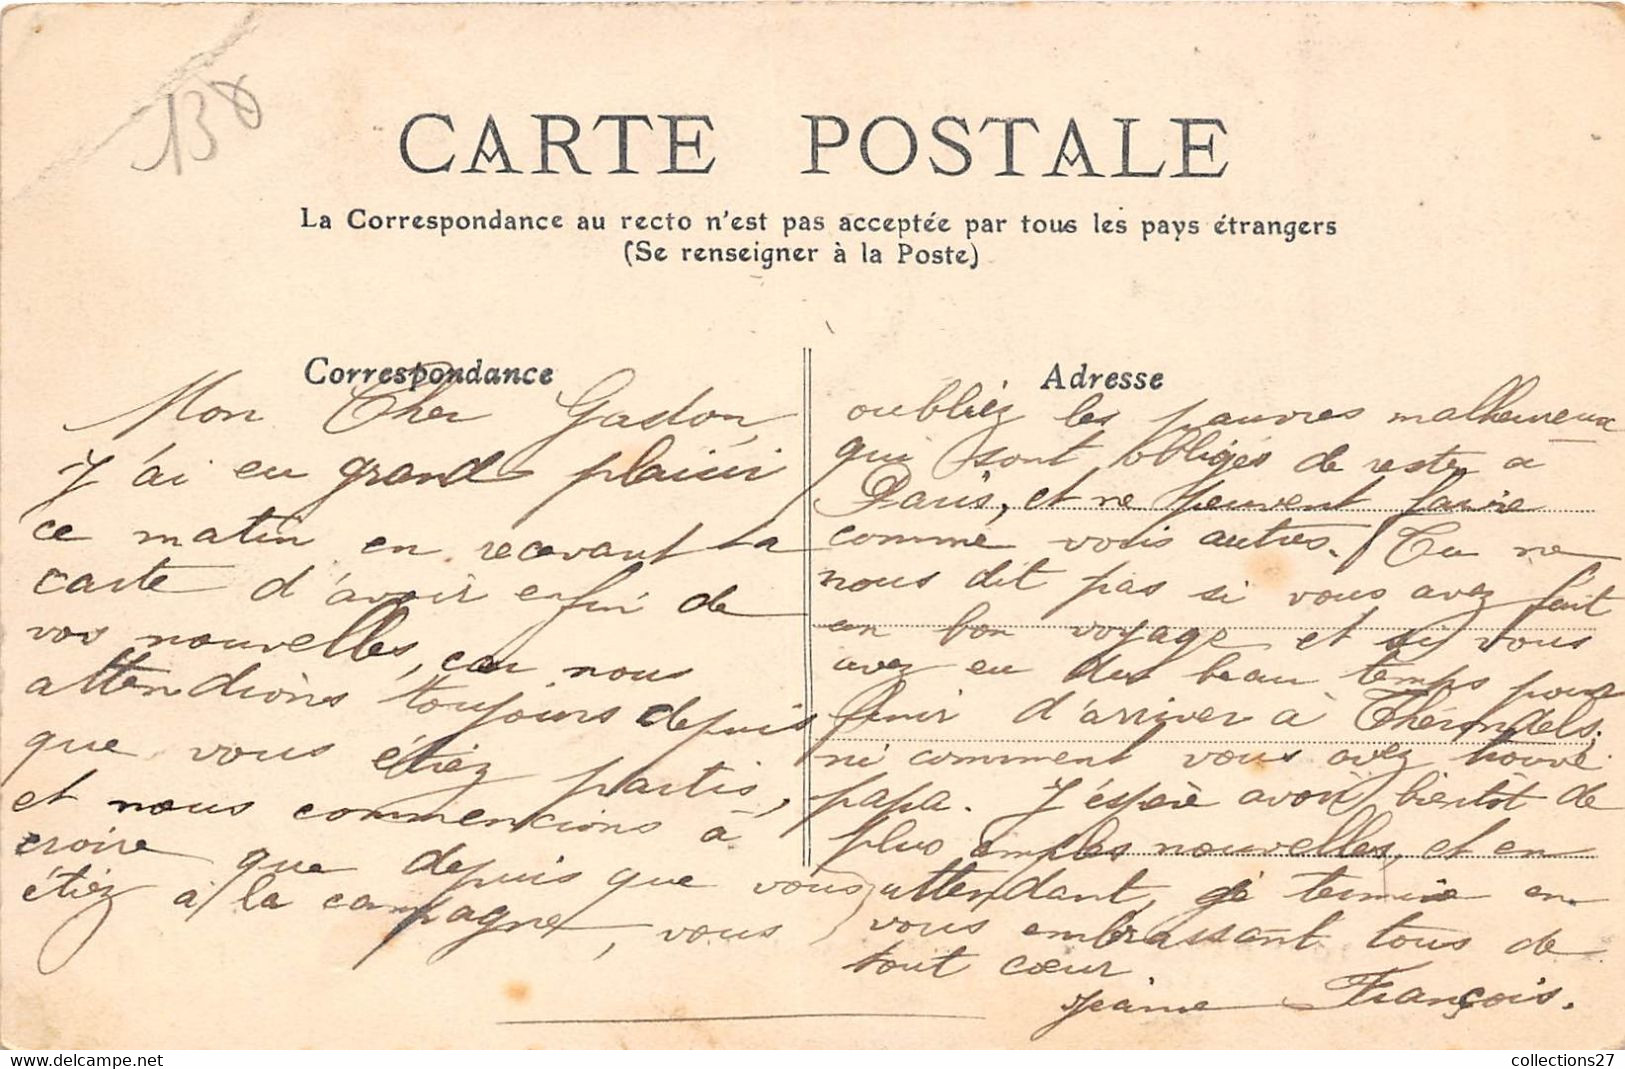 138
CARTE POSTALE
La Correspondance au recto n'est pas acceptée par tous les pays étrangers
(Se renseigner à la Poste)
Correspondance
Mon Cher Gaston,
J'ai eu grand plaisir
ce matin en recevant ta
carte d'avoir enfin de
vos nouvelles, car nous
attendions toujours depuis
que vous étiez partis,
et nous commencions à
croire que depuis que vous
étiez à la campagne, vous
Adresse
oubliez les pauvres malheureux
qui sont obligés de rester à
Paris, et ne peuvent faire
comme vous autres. Tu ne
nous dit pas si vous avez fait
un bon voyage et si vous
avez eu du beau temps pour
finir d'arriver à Thérondels,
ni comment vous avez trouvé
papa. J'espère avoir bientôt de
plus amples nouvelles, et en
attendant, je termine en
vous embrassant tous de
tout cœur.
Jeanne François.
collections27